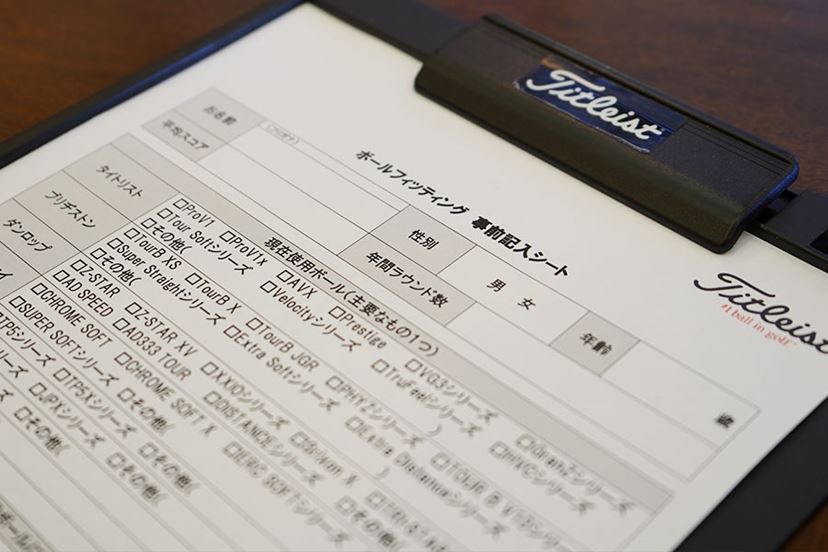 Titleist
Titleist
#1 ball in golf™
ボールフィッティング 事前記入シート
お名前
(フリガナ)
性別
男 女
年齢
歳
平均スコア
年間ラウンド数
現在使用ボール(主要なもの1つ)
タイトリスト
□ProV1 □ProV1x □AVX □Prestige □VG3シリーズ
□Tour Softシリーズ □Velocityシリーズ □TruFeelシリーズ
□その他(
ブリヂストン
□TourB XS □TourB X □TourB JGR □PHYZシリーズ □TOUR B V10シリーズ
□Super Straightシリーズ □Extra Softシリーズ □Extra Distanceシリーズ
□その他(
ダンロップ
□Z-STAR □Z-STAR XV □XXIOシリーズ □Srixon X
□AD SPEED □AD333 TOUR □DISTANCEシリーズ
□その他(
□CHROME SOFT □CHROME SOFT X □ERC SOFTシリーズ
□SUPER SOFTシリーズ □その他(
□TP5シリーズ □TP5Xシリーズ □その他(
□JPXシリーズ □その他(
□その他(